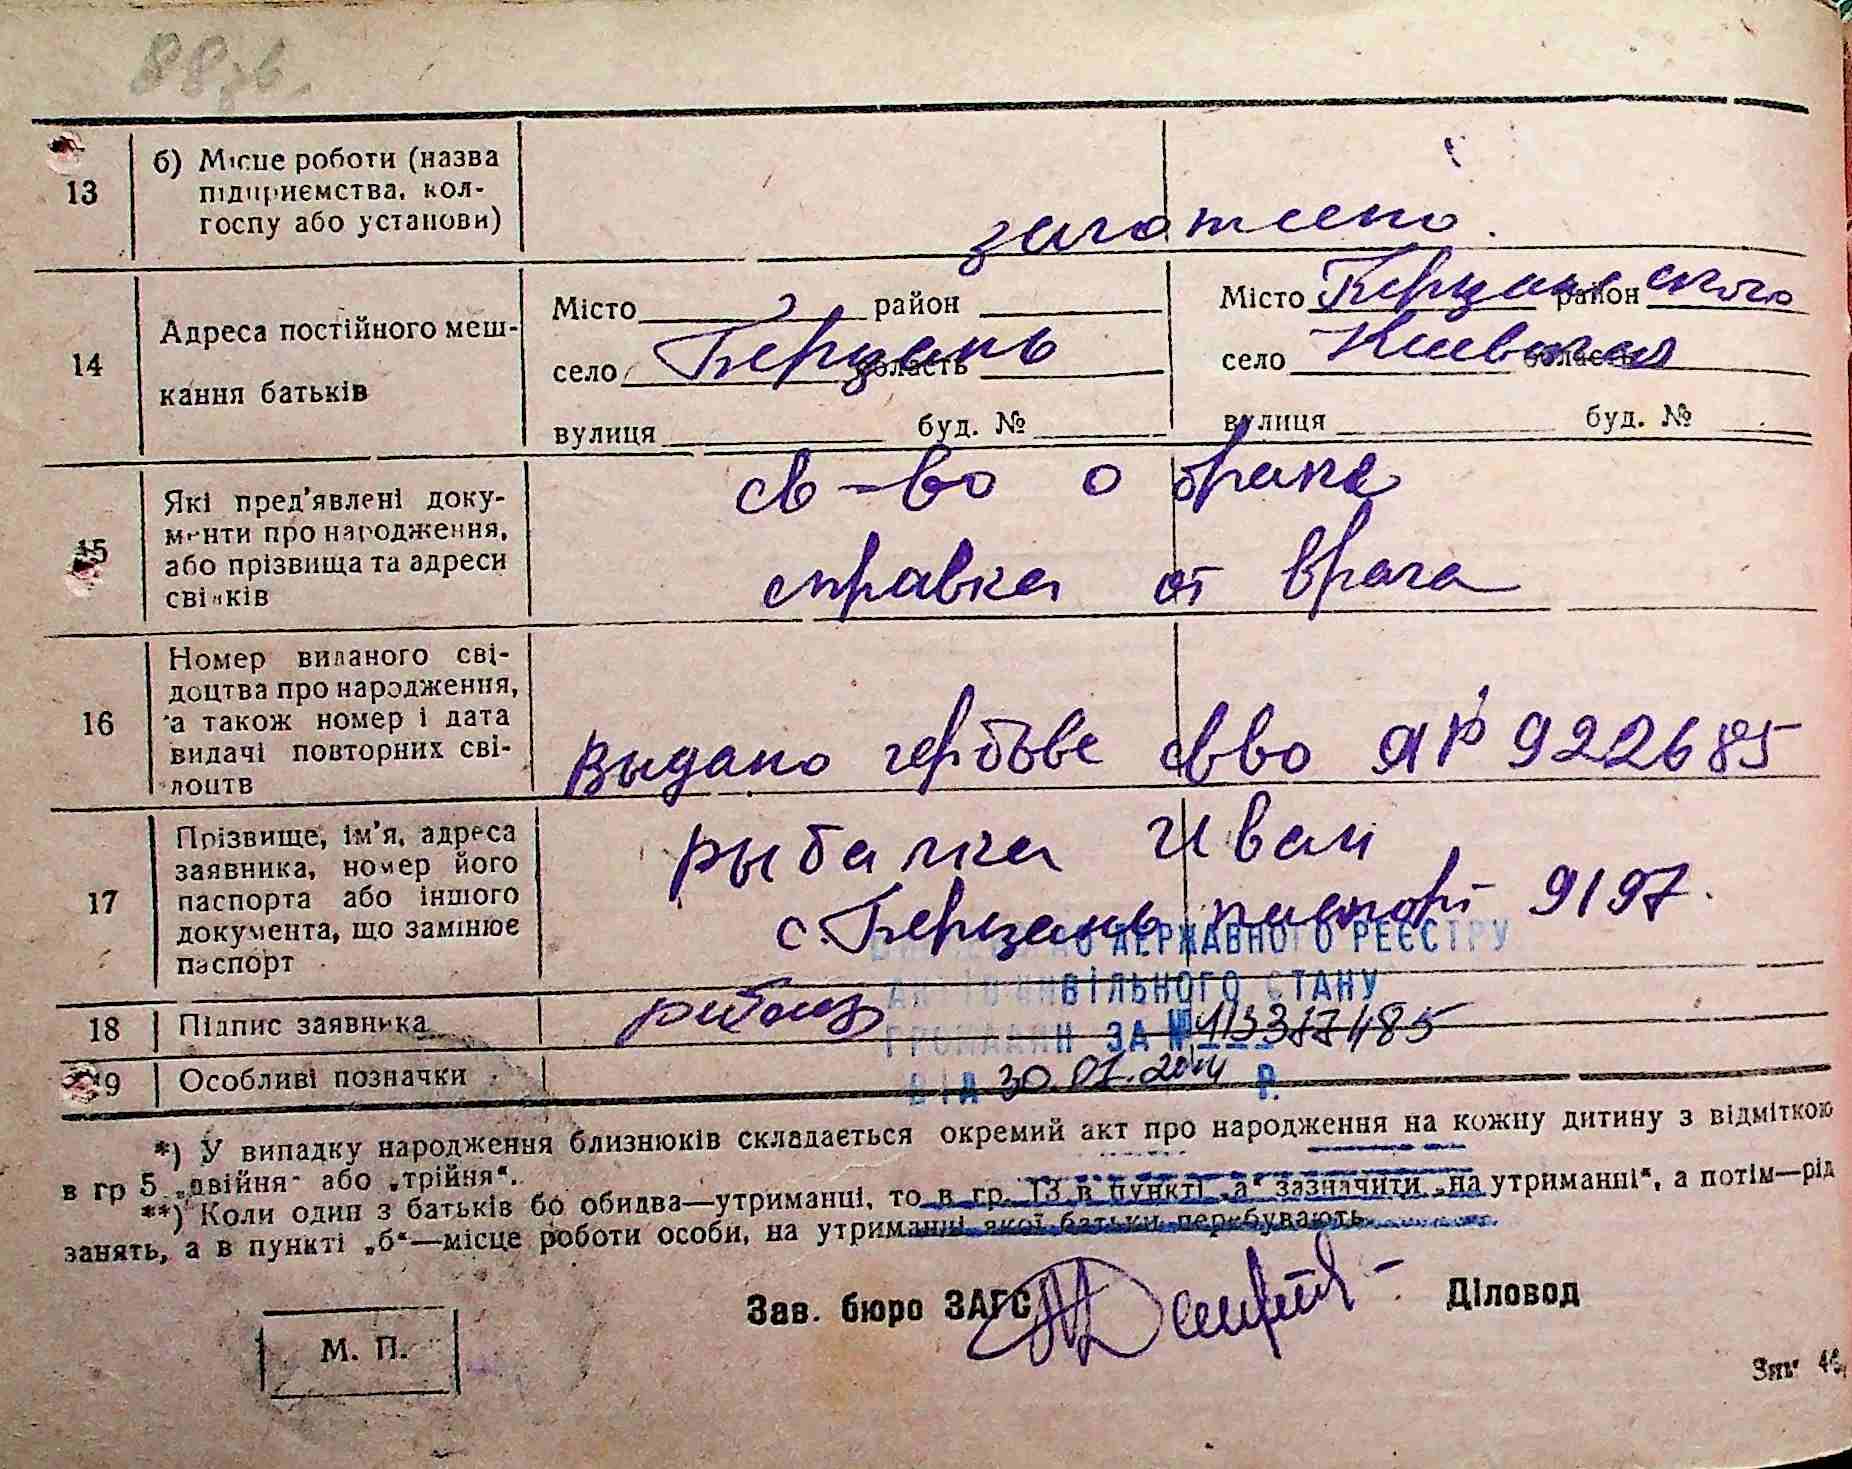 88зв.
13
б) Місце роботи (назва
підприємства, кол-
госпу або установи)
14
Адреса постійного меш-
кання батьків
Місто район
село Берцань область
вулиця буд. №
Місто район
село область
вулиця буд. №
15
Які пред'явлені доку-
менти про народження,
або прізвища та адреси
свідків
св-во о браке
справка от врача
16
Номер виданого сві-
доцтва про народження,
а також номер і дата
видачі повторних сві-
доцтв
выдано гербове св-во ЯР 922685
17
Прізвище, ім'я, адреса
заявника, номер його
паспорта або іншого
документа, що замінює
паспорт
рыбалка Иван
с. Берцань паспорт 9197.
ДЕРЖАВНОГО РЕЄСТРУ
АКТІВ ЦИВІЛЬНОГО СТАНУ
ГРОМАДЯН ЗА №
ВІД 30.01.2014 Р.
18
Підпис заявника
19
Особливі позначки
*) У випадку народження близнюків складається окремий акт про народження на кожну дитину з відміткою
в гр 5 „двійня" або „трійня".
**) Коли один з батьків бо обидва—утриманці, то в гр. 13 в пункті „а" зазначити „на утриманні", а потім—рід
занять, а в пункті „б"—місце роботи особи, на утриманні якої батьки перебувають.
Зав. бюро ЗАГС
Діловод
М. П.